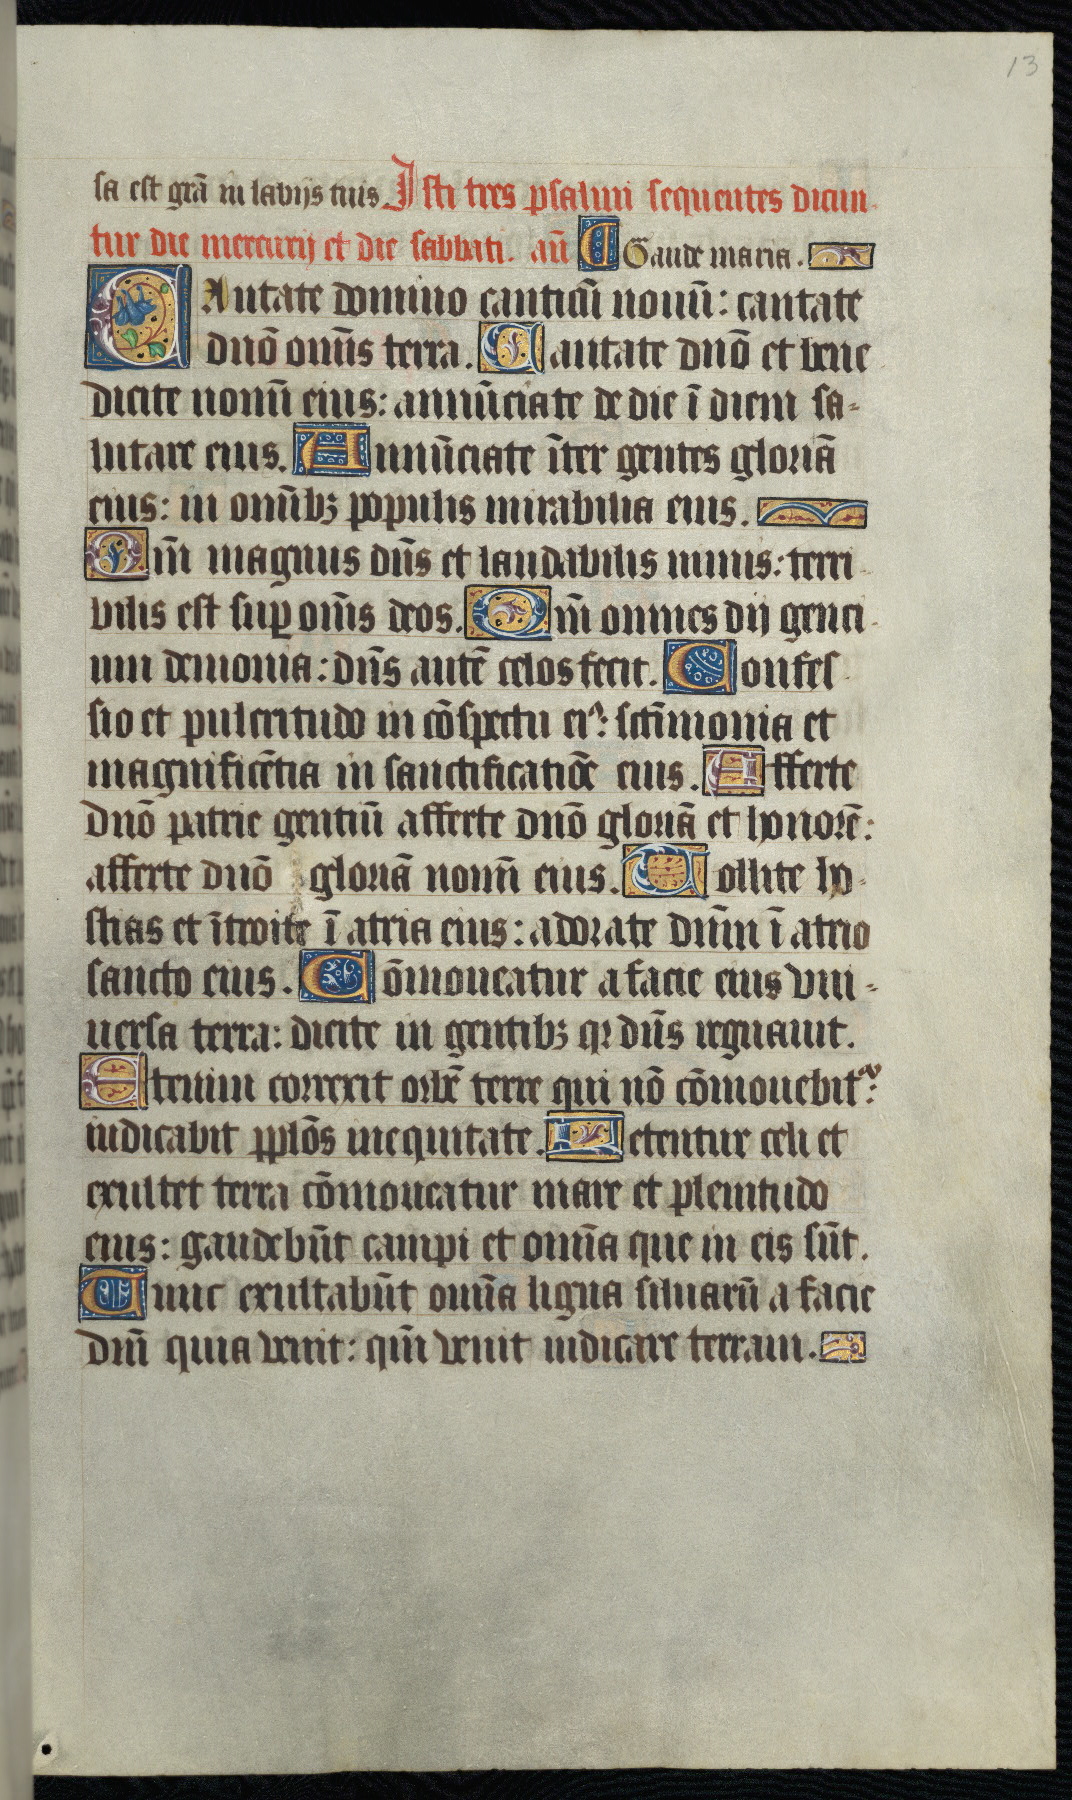 13
sa est grā in labijs tuis Isti tres psalmi sequentes dicun
tur die mercurij et die sabbati. añ Gaude maria.
CAntate domino canticū nouū: cantate
dnō om̄is terra. Cantate dnō et bene
dicite nomī eius: annūciate de die ī diem sa-
lutare eius. Annūciate īter gentes gloriā
eius: in omībꝫ populis mirabilia eius.
Qm̄ magnus dn̄s et laudabilis nimis: terri
bilis est suꝑ om̄s deos. Qm̄ omnes dij genci
um demonia: dn̄s autē celos fecit. Confes
sio et pulcritudo in cōspectu eiꝰ: sctīmonia et
magnificētia in sanctificatiōe eius. Afferte
dnō patrie gentiū afferte dnō gloriā et honorē:
afferte dnō gloriā nomī eius. Tollite ho
stias et ītroite ī atria eius: adorate dn̄m ī atrio
sancto eius. Cōmoueatur a facie eius vni-
uersa terra: dicite in gentibꝫ qꝛ dn̄s regnauit.
Etenim correxit orbē terre qui nō cōmouebitᷣ:
iudicabit pplōs in equitate. Letentur celi et
exultet terra cōmoueatur mare et plenitudo
eius: gaudebūt campi et omīa que in eis sūt.
Tunc exultabūt omīa ligna siluarū a facie
dn̄i quia venit: qm̄ venit iudicare terram.